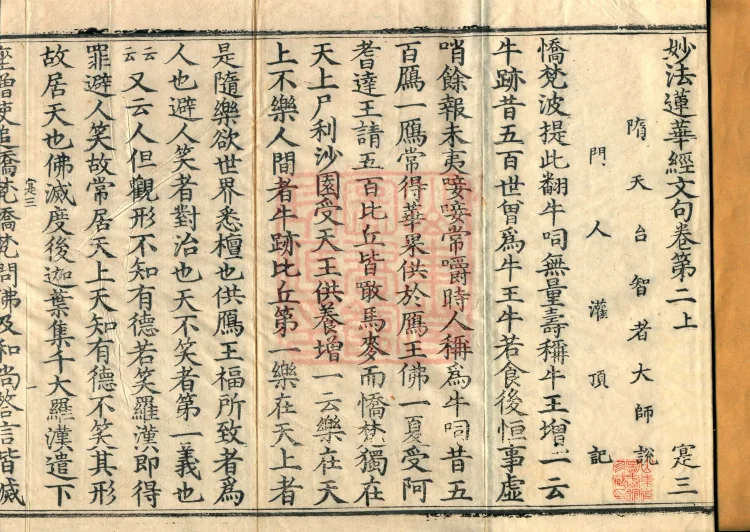 妙法蓮華經文句卷第二上 寔三
隋天台智者大師說
門人灌頂記
憍梵波提此翻牛呞無量壽稱牛王增一云
牛跡昔五百世曾爲牛王牛若食後恒事虛
哨餘報未夷唼唼常嚼時人稱爲牛呞昔五
百鴈一鴈常得華果供於鴈王佛一夏受阿
耆達王請五百比丘皆噉馬麥而憍梵獨在
天上尸利沙園受天王供養增一云樂在天
上不樂人間者牛跡比丘第一樂在天上者
是隨樂欲世界悉檀也供鴈王福所致者爲
人也避人笑者對治也天不笑者第一義也
云云又云人但觀形不知有德若笑羅漢即得
罪避人笑故常居天上天知有德不笑其形
故居天也佛滅度後迦葉集千大羅漢遣下
寔三
座僧使追憍梵憍梵問佛及和尚答言皆滅